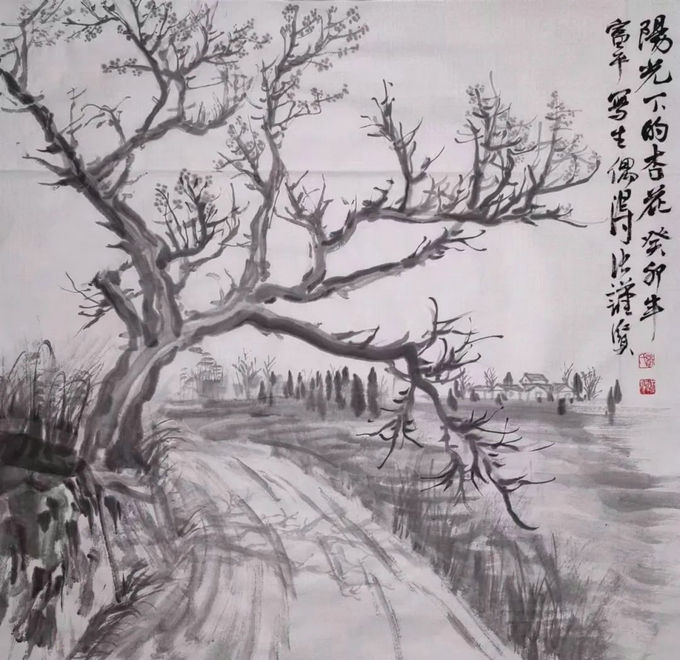 陽光下的杏花 癸卯年
富平寫生偶得 張謹賢